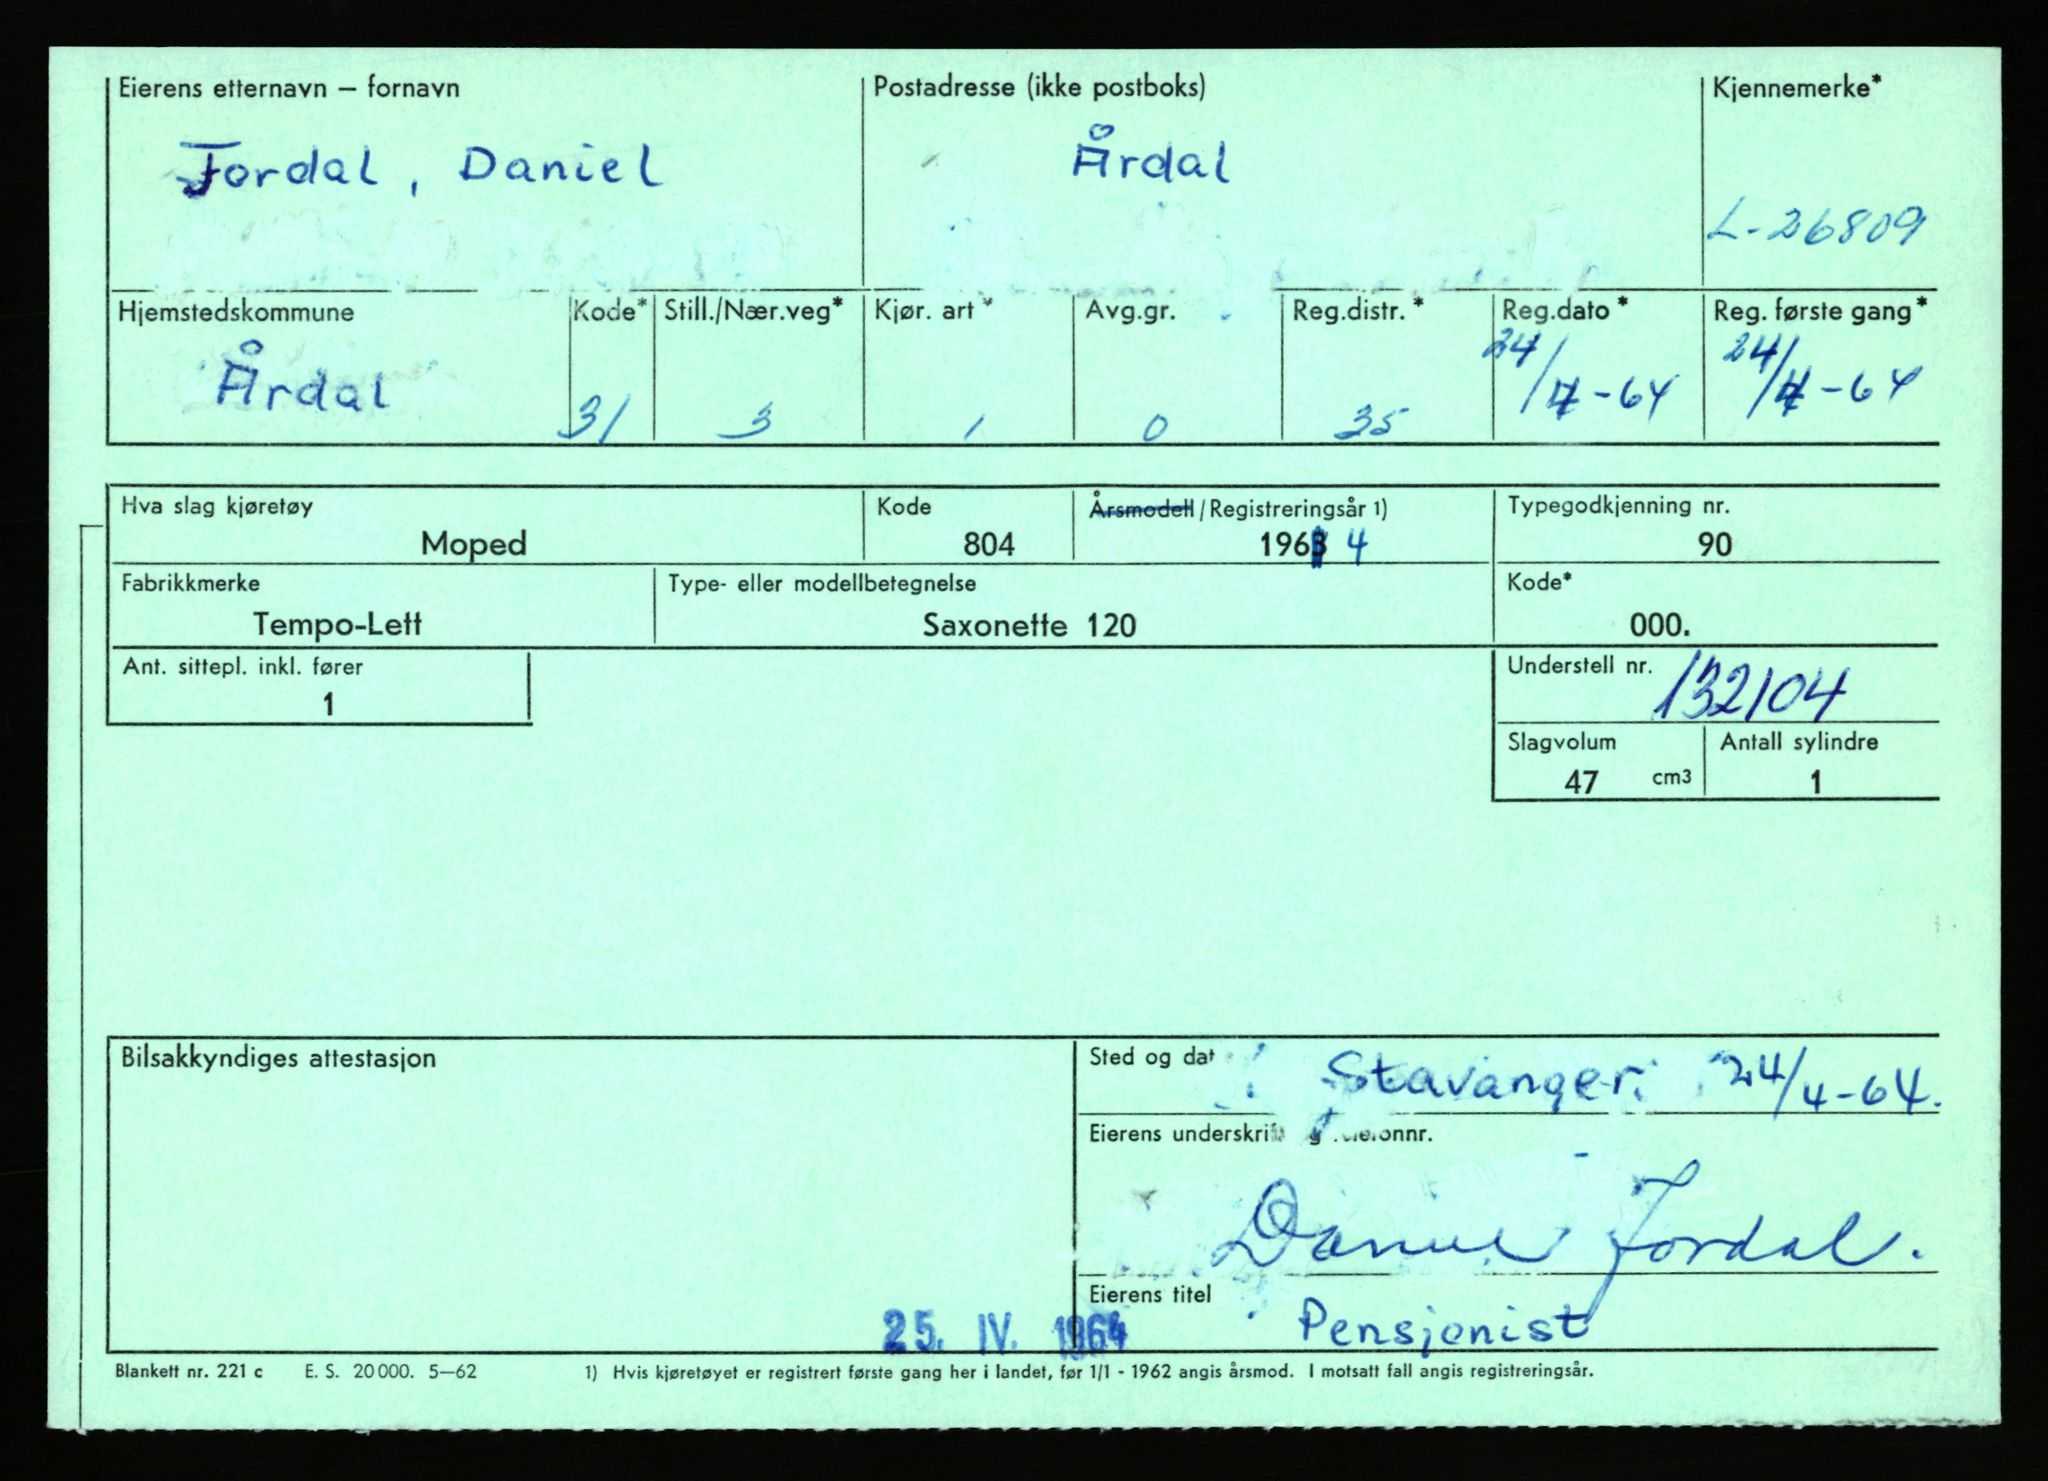 Eierens etternavn – fornavn Postadresse (ikke postboks) Kjennemerke*
Jordal, Daniel Årdal
L-26809
Hjemstedskommune Kode* Still./Nær.veg* Kjør. art* Avg.gr. Reg.distr.* Reg.dato* Reg. første gang*
Årdal 31 3 1 0 35 24/4-64 24/4-64
Hva slag kjøretøy Kode Årsmodell/Registreringsår 1) Typegodkjenning nr.
Moped 804 1963 4 90
Fabrikkmerke Type- eller modellbetegnelse Kode*
Tempo-Lett Saxonette 120 000.
Ant. sittepl. inkl. fører Understell nr. 132104
1
Slagvolum Antall sylindre
47 cm3 1
Bilsakkyndiges attestasjon Sted og dat Stavanger. 24/4-64.
Eierens underskrift g telefonnr.
Daniel Jordal.
Eierens titel
25. IV. 1964 Pensjonist
Blankett nr. 221 c E. S. 20 000. 5–62 1) Hvis kjøretøyet er registrert første gang her i landet, før 1/1 - 1962 angis årsmod. I motsatt fall angis registreringsår.